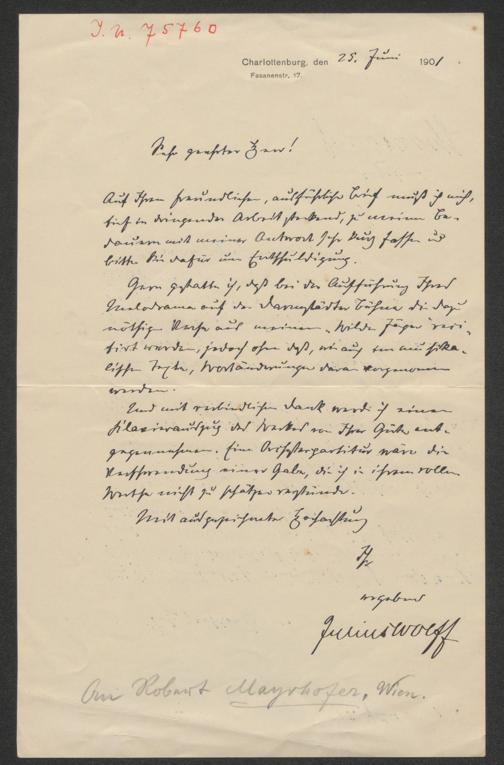 J. N. 75760
Charlottenburg, den 25. Juni 1901
Fasanenstr. 17.
Sehr geehrter Herr!
Auf Ihren freundlichen, ausführlichen Brief muß ich mich,
tief in dringender Arbeit steckend, zu meinem Be-
dauern mit meiner Antwort sehr kurz fassen und
bitte Sie dafür um Entschuldigung.
Gern gestatte ich, daß bei der Aufführung Ihres
Melodrams auf der Darmstädter Bühne die dazu
nöthigen Verse aus meinem „Wilde Jäger" reci-
tirt werden, jedoch ohne daß, wie auch im musika-
lischen Texte, Wortänderungen daran vorgenommen
werden.
Und mit verbindlichem Dank werde ich einen
Klavierauszug des Werkes von Ihrer Güte ent-
gegennehmen. Eine Orchesterpartitur wäre die
Verschwendung einer Gabe, die ich in ihrem vollen
Werthe nicht zu schätzen verstünde.
Mit ausgezeichneter Hochachtung
Ihr
ergebener
Julius Wolff
An Robert Mayrhofer, Wien.